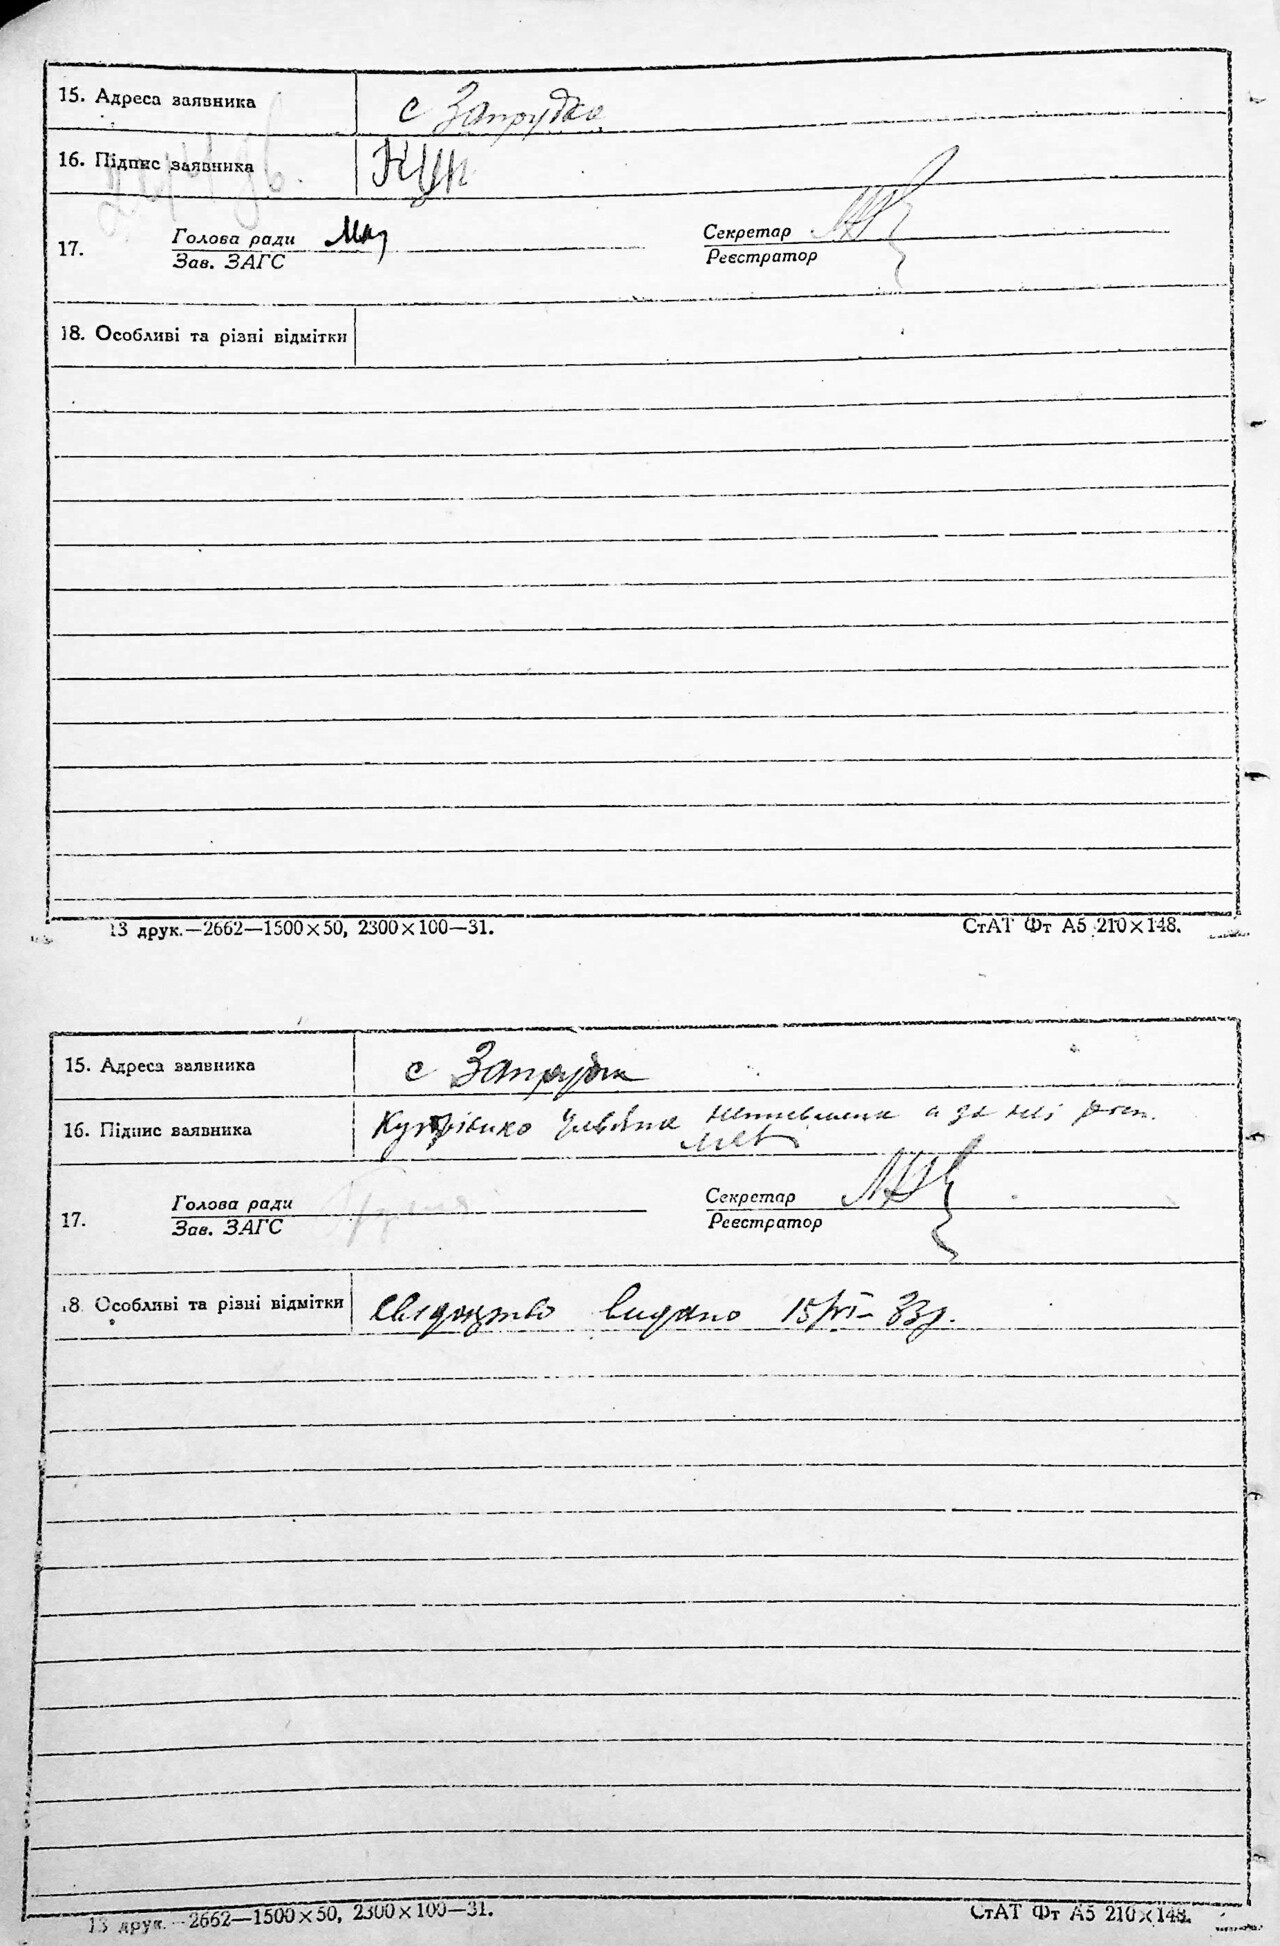 15. Адреса заявника с Запрудка
16. Підпис заявника
17. Голова ради Секретар
Зав. ЗАГС Реєстратор
18. Особливі та різні відмітки
13 друк.—2662—1500×50, 2300×100—31. СтАТ Фт А5 210×148.
15. Адреса заявника с Запрудка
16. Підпис заявника неписьмена а за неї розп.
17. Голова ради Секретар
Зав. ЗАГС Реєстратор
18. Особливі та різні відмітки свідоцтво видано 15/VI–33р.
13 друк.—2662—1500×50, 2300×100—31. СтАТ Фт А5 210×148.